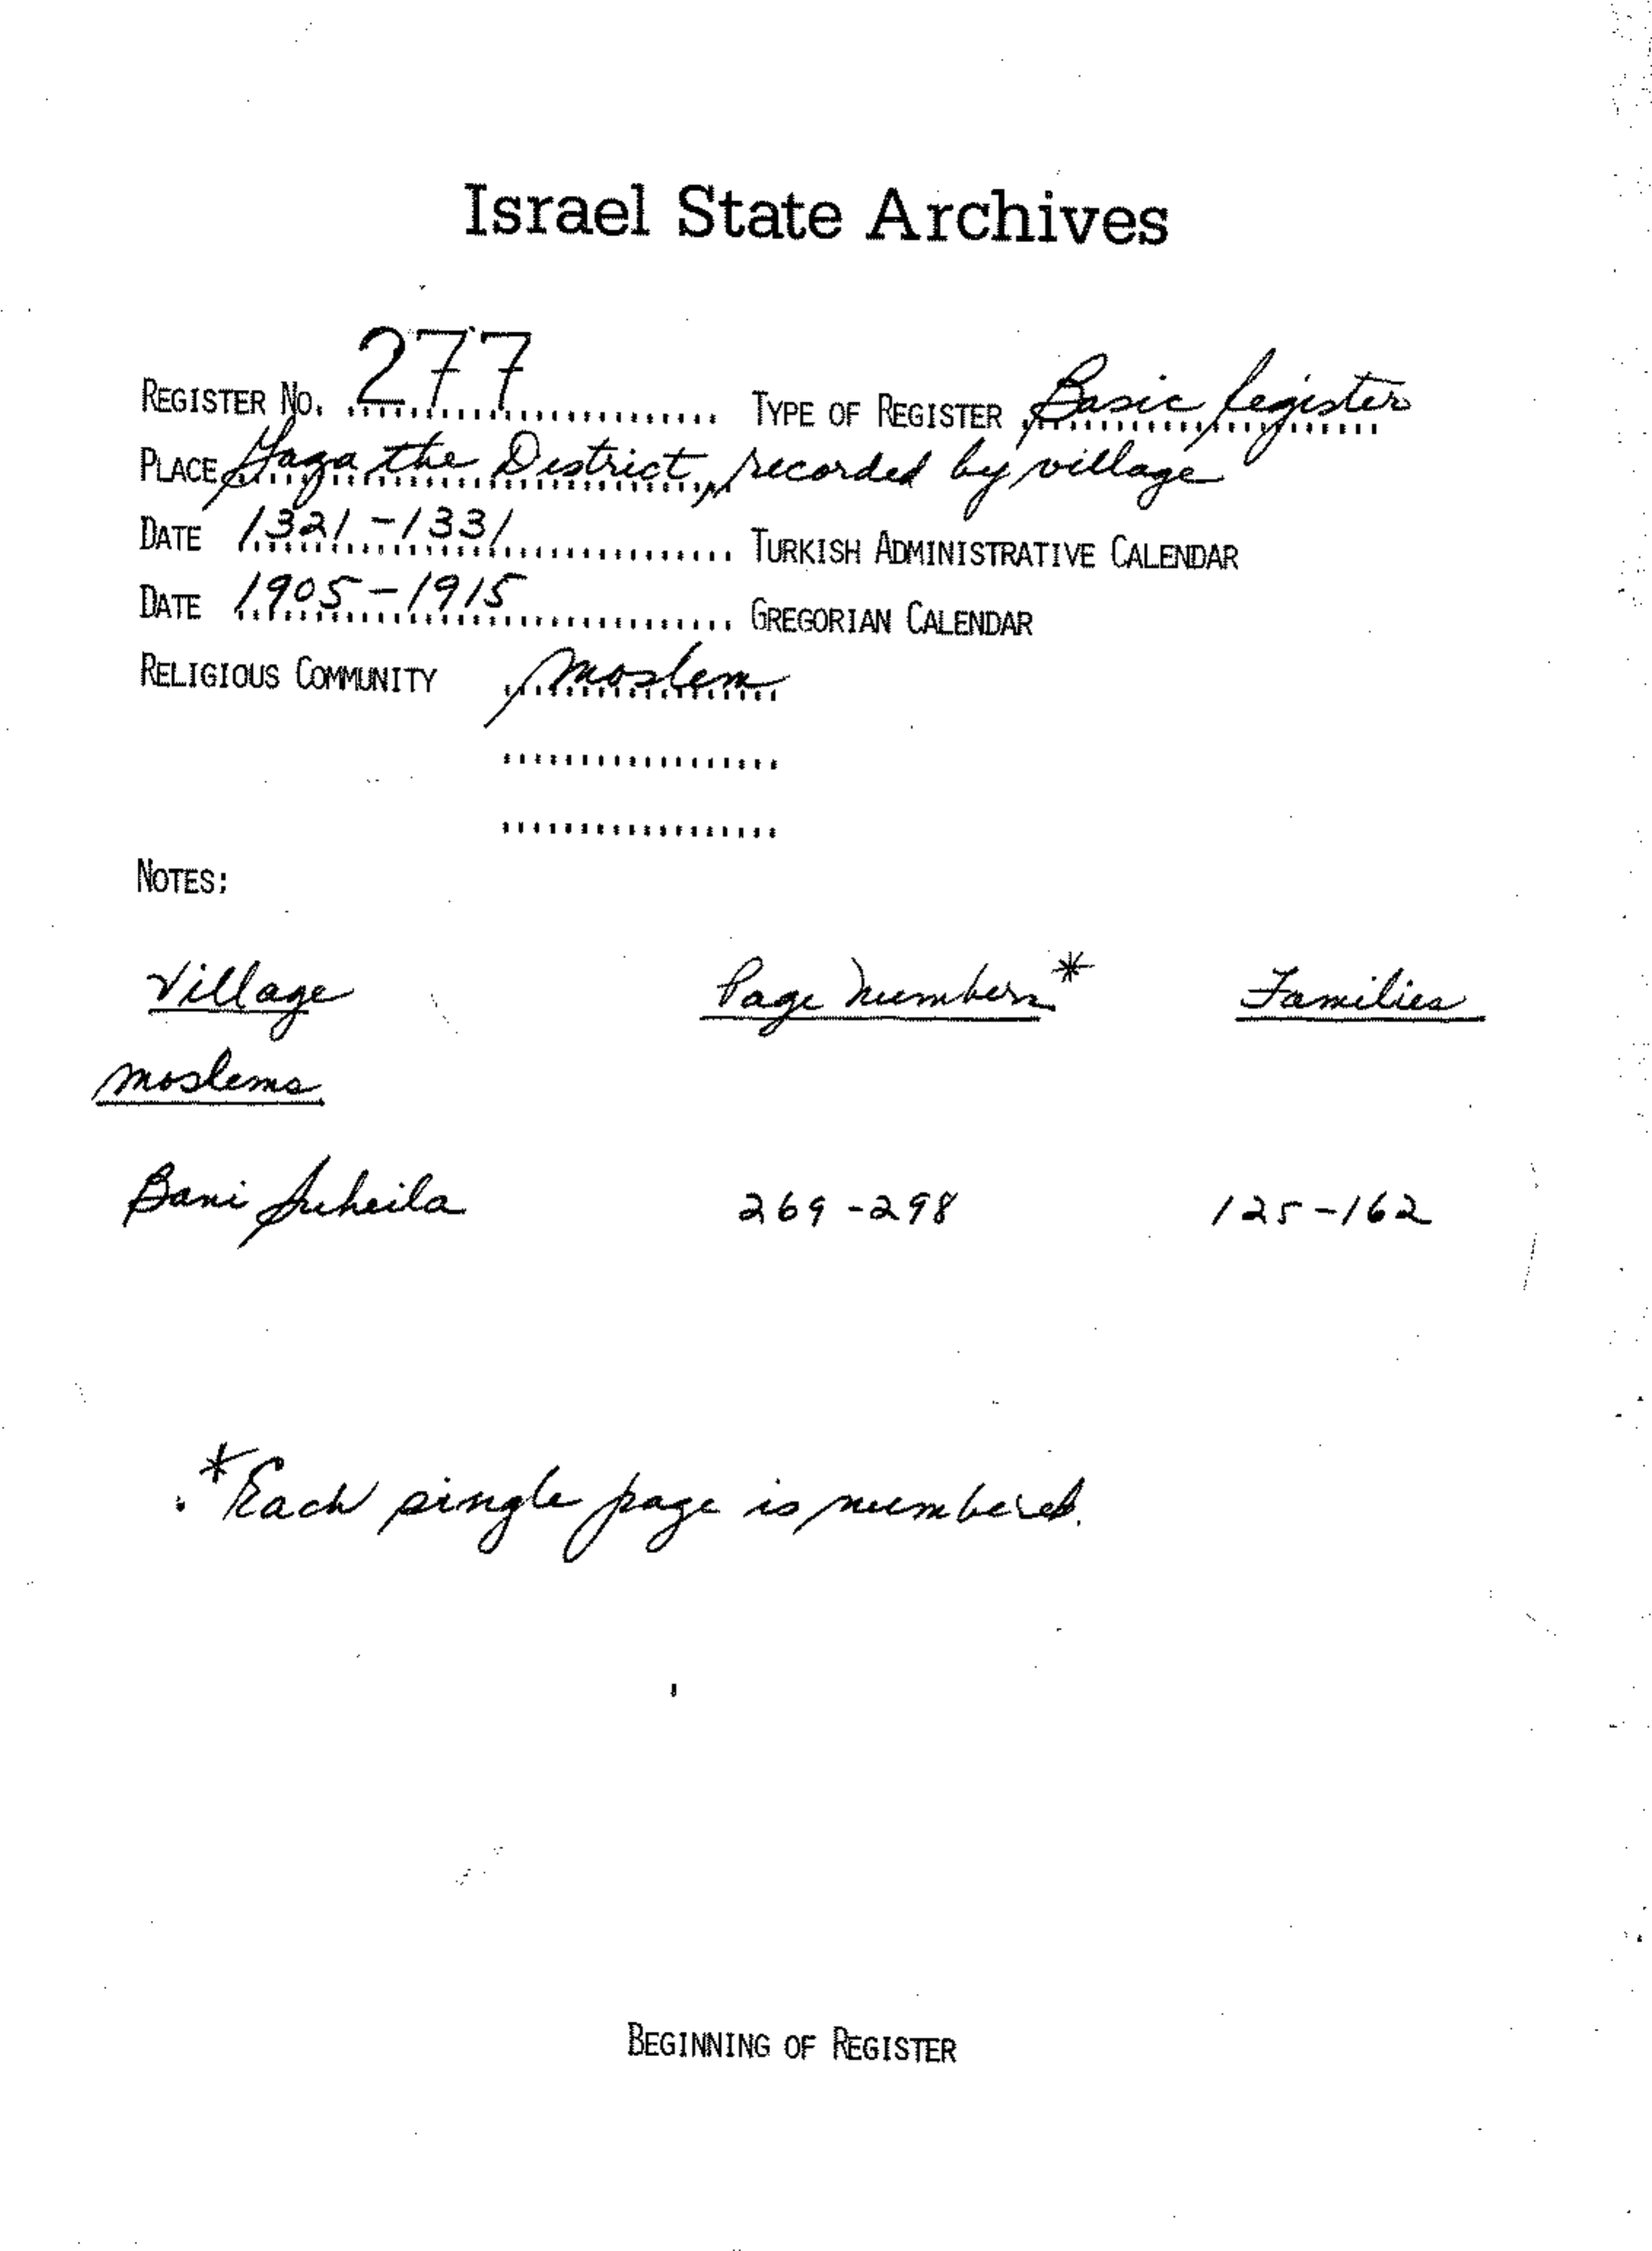 Israel State Archives
REGISTER NO. 277 TYPE OF REGISTER Basic register
PLACE Gaza the District, recorded by village
DATE 1321-1331 TURKISH ADMINISTRATIVE CALENDAR
DATE 1905-1915 GREGORIAN CALENDAR
RELIGIOUS COMMUNITY Moslem
NOTES:
Village Page Numbers* Families
Moslems
Bani Suheila 269-298 125-162
*Each single page is numbered.
BEGINNING OF REGISTER